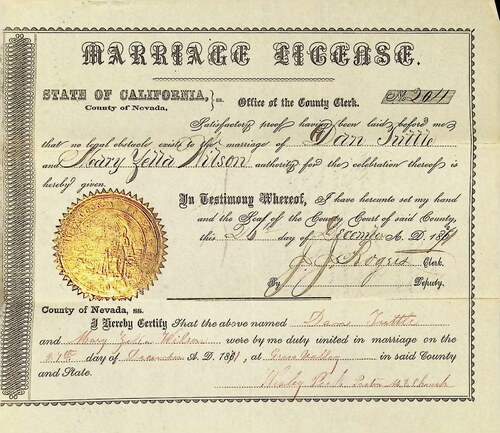 MARRIAGE LICENSE.
STATE OF CALIFORNIA, } ss. Office of the County Clerk. No 204
County of Nevada,
Satisfactory proof having been laid before me
that no legal obstacle exists to the marriage of Dan Tuttle
and Mary Zella Wilson authority for the celebration thereof is
hereby given.
In Testimony Whereof, I have hereunto set my hand
and the Seal of the County Court of said County,
this day of December A. D. 187
J. J. Rogers Clerk.
By Deputy.
County of Nevada, ss.
I Hereby Certify That the above named Tuttle
and Mary Zella Wilson were by me duly united in marriage on the
day of December A. D. 18, at Grass Valley in said County
and State.
Wesley Pastor M. E. Church